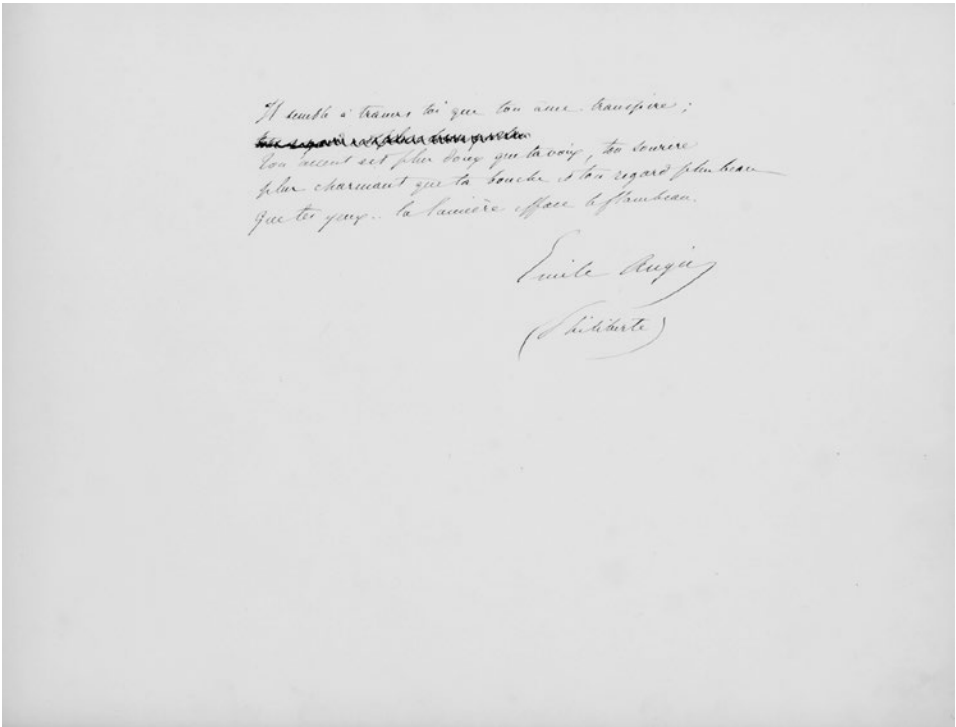 Il semble à travers toi que ton âme transpire ;
Ton accent est plus doux que ta voix, ton sourire
plus charmant que ta bouche et ton regard plus beau
que tes yeux.. la lumière efface le flambeau.
Emile Augier
(Philiberte)